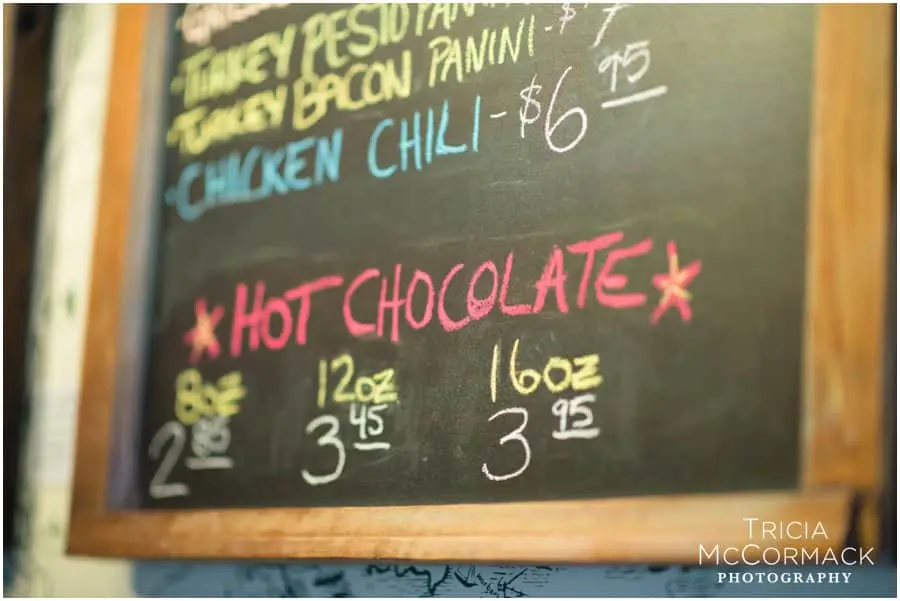 TURKEY PESTO PANINI
TURKEY BACON PANINI - $7
CHICKEN CHILI - $6 95
HOT CHOCOLATE
8oz 12oz 16oz
2 3 45 3 95
TRICIA
MCCORMACK
PHOTOGRAPHY